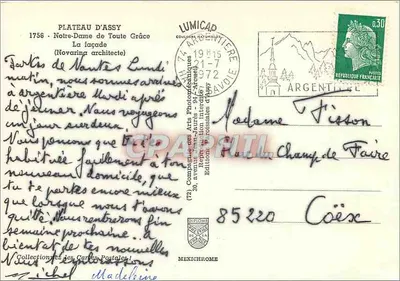 PLATEAU D'ASSY
1756 - Notre-Dame de Toute Grâce
La façade
(Novarina architecte)
Partis de Nantes Lundi
matin, nous sommes arrivés
à argentière Mardi après
déjeuner. Nous voyageons
un jour sur deux.
Nous pensons que tu t'es
habituée facilement à ton
nouveau domicile, que
tu te portes encore mieux
que lorsque nous t'avons
quitté. Nous rentrerons fin
semaine prochaine. à
bientôt de tes nouvelles
Nous t'embrassons
Michel Madeleine
Collectionnez les Cartes Postales
LUMICAP
74 ARGENTIERE
19H15
21-7
1972
HTE SAVOIE
ARGENTIERE
0,30
REPUBLIQUE FRANÇAISE
Madame Fisson
Rue du Champ de Foire
85220 Coëx
MEXICHROME